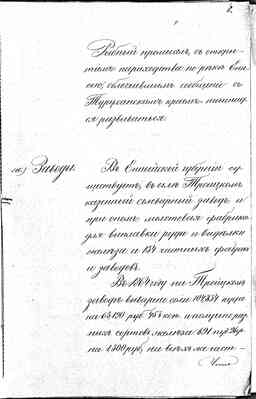 2.
Рыбный промыселъ, съ откры-
тіемъ пароходства по рѣкѣ Ени-
сею, облегчившимъ сообщеніе съ
Туруханскимъ краемъ, начина-
ся развиваться.
Заводы. Въ Енисейской губерніи су-
ществуютъ, въ селѣ Троицкомъ
казенный солеваренный заводъ и
при ономъ
для выплавки руды и выделки
желѣза и 134 частныхъ фабрикъ
и заводовъ.
Въ 1864 году на Троицкомъ
заводѣ выварено соли 104354 пуда
на 65190 руб. 45 коп. и
сортовъ желѣза 821 пуд.
на 1500 руб., на всѣхъ же част-